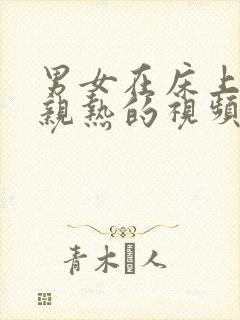 男女在床上
親熱的視頻
青木 人